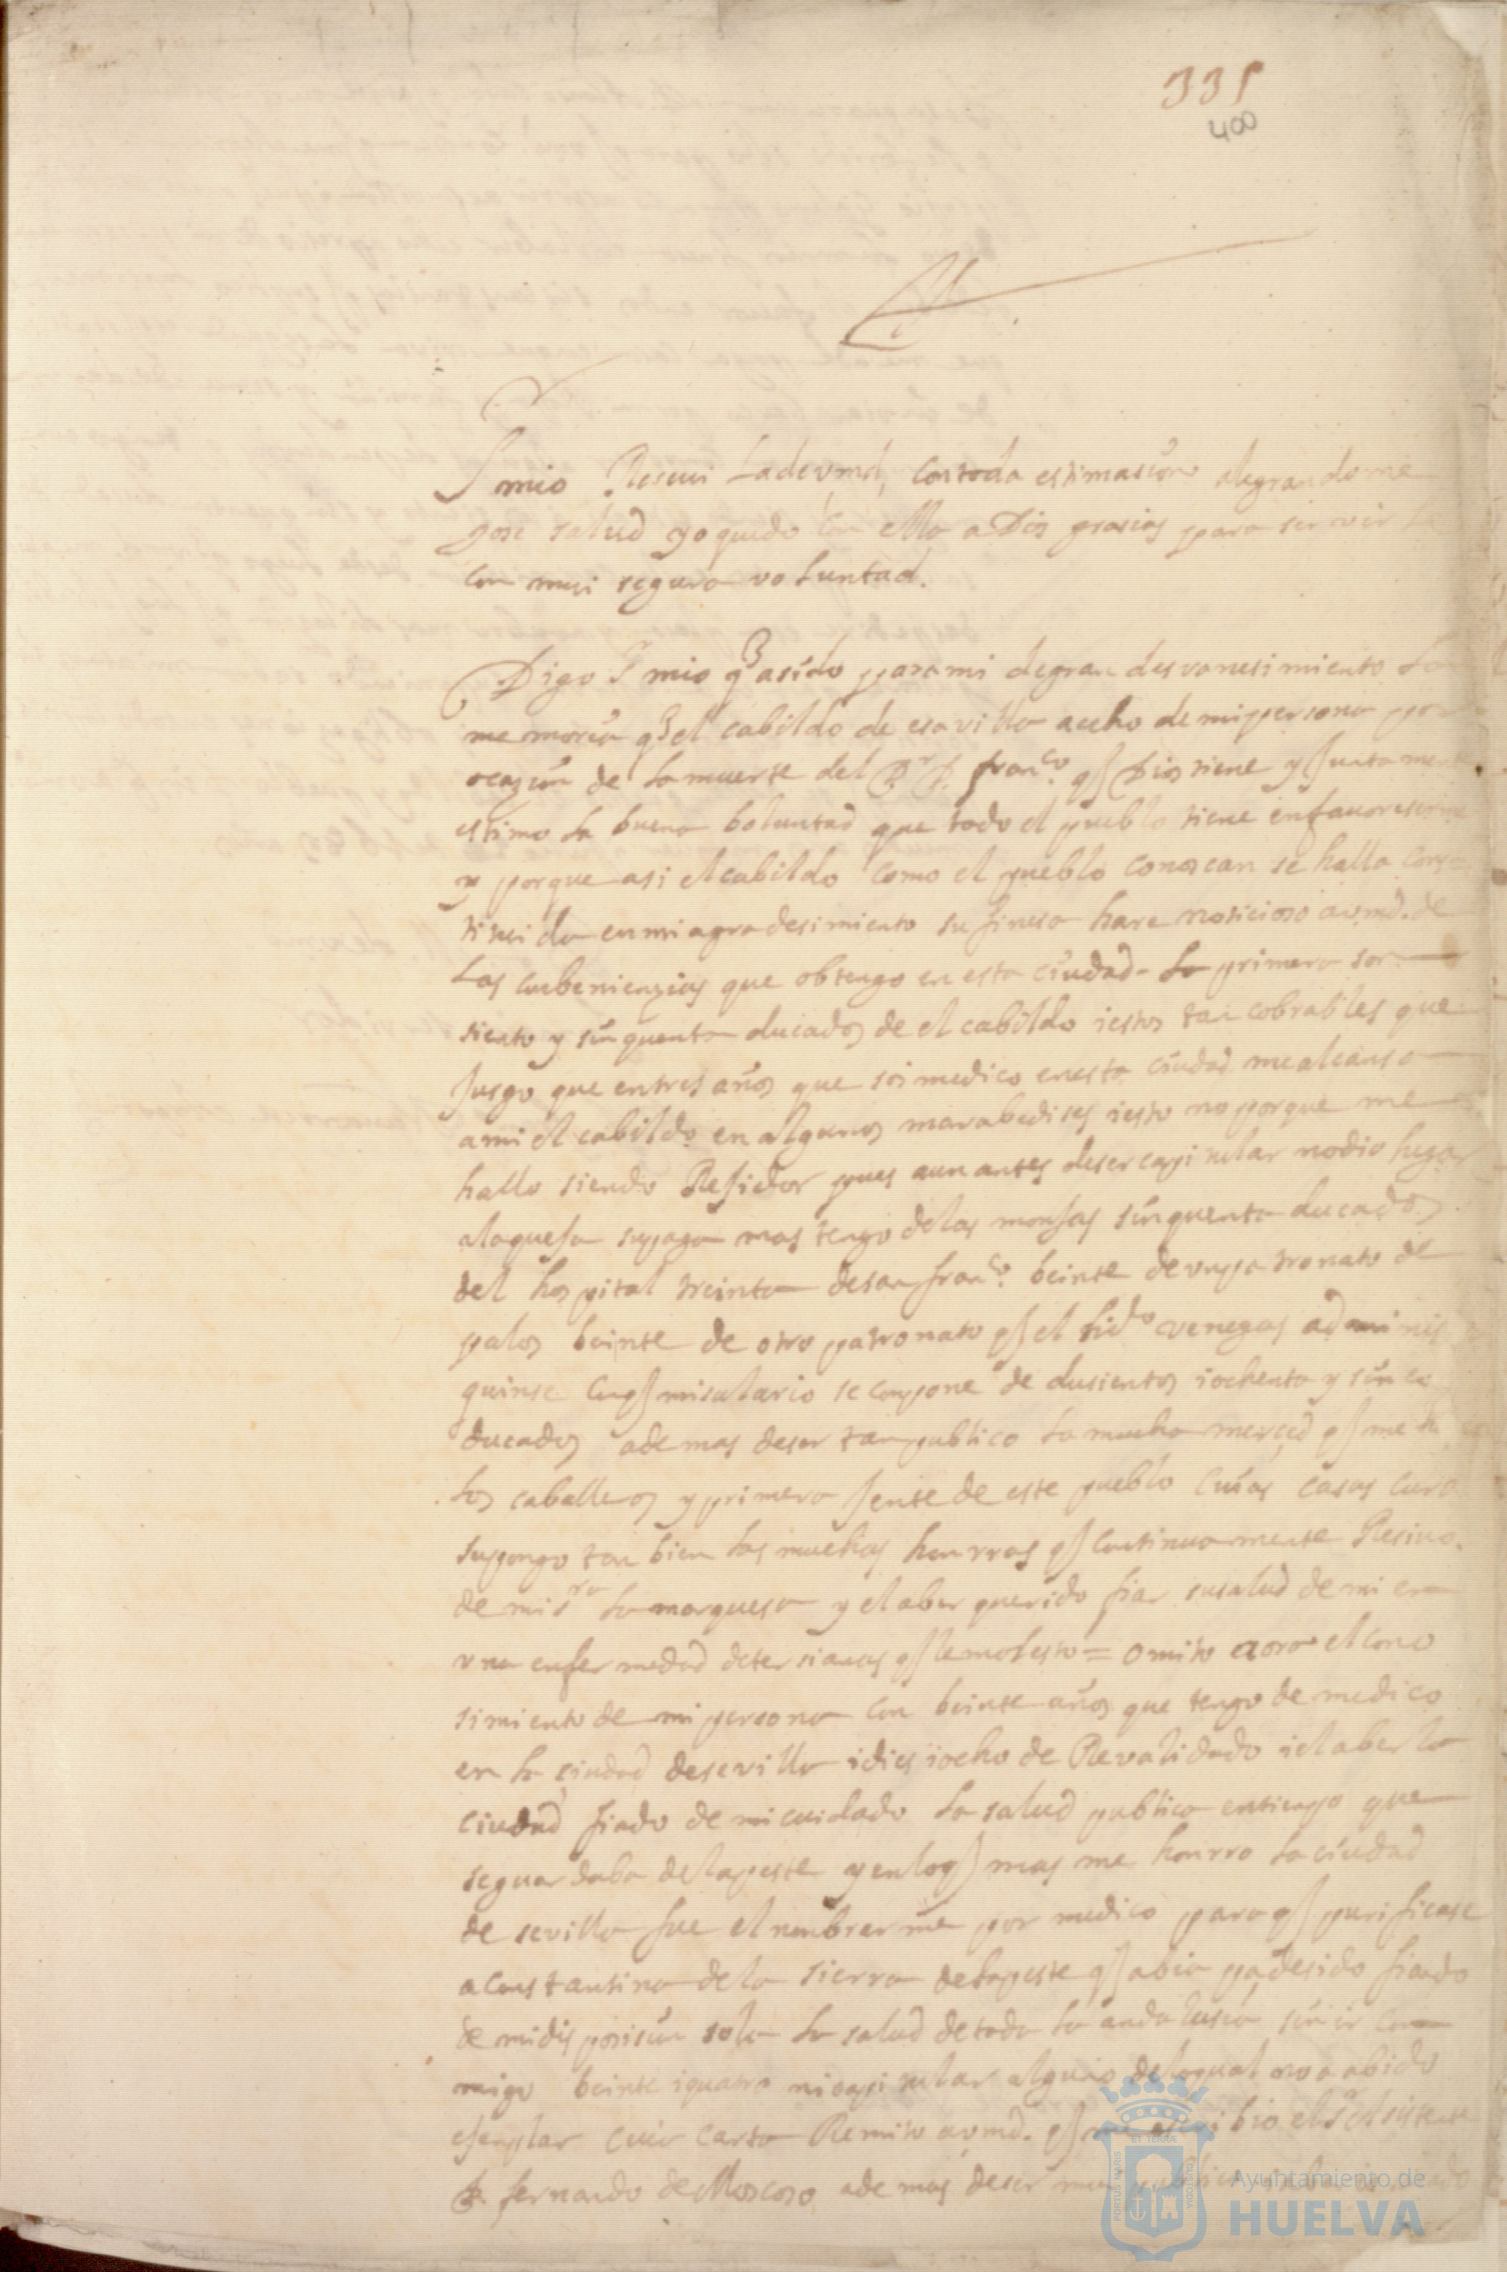 335
400
Sr mio Reseui la de vmd, con toda estimasion alegrandome
gose salud yo quedo con ella a Dios grasias para servir le
con mui segura voluntad.
Digo Sr mio q a sido para mi de gran desvanesimiento la
memoria q el cabildo de esa villa a echo de mi persona por
ocazion de la muerte del Dr D. franco q Dios tiene y juntamente
estimo la buena boluntad que todo el pueblo tiene en favoreserme
y porque asi el cabildo como el pueblo conoscan se halla corres
tituida en mi agradesimiento su finesa hare notisioso a vmd. de
las conbenienzias que obtengo en esta ciudad - la primera son
siento y sinquenta ducados de el cabildo i estos tan cobrables que
jusgo que en tres años que soi medico en esta ciudad me alcansa
a mi el cabildo en algunos marabedises i esto no porque me
hallo siendo Residor pues aun antes de ser capitular no dio lugar
a la quesa su paga mas tengo de las monjas sinquenta ducados
del hospital treinta de san franco. beinte de un patronato de
palos beinte de otro patronato q el lisdo venegas adminis
quinse conq mi salario se compone de dusientos i ochenta y sinco
ducados ademas de ser tan publico la mucha merced q me ha
los caballeros y primera jente de este pueblo cuias casas curo
supongo tan bien las muchas honrras q continuamente Resivo
de mi sra la marquesa y el aber querido fiar su salud de mi en
vna enfermedad de tersianas q le molesto = omito aora el cono
simiento de mi persona con beinte años que tengo de medico
en la ciudad de sevilla i dies i ocho de Revalidado i el aber la
ciudad fiado de mi cuidado la salud publica en tienpo que
se guardaba de la peste y en lo q mas me honrro la ciudad
de sevilla fue el nonbrarme por medico para q purificase
a constantina de la sierra de la peste q abia padesido fiando
de mi disposision sola la salud de toda la andalusia sin ir con
migo beinte i quatro ni capitular alguno de lo qual no a abido
ejemplar cuia carta Remito a vmd. q me escribio el sr asistente
D. fernando de Moscoso ademas de ser mui
Ayuntamiento de
HUELVA